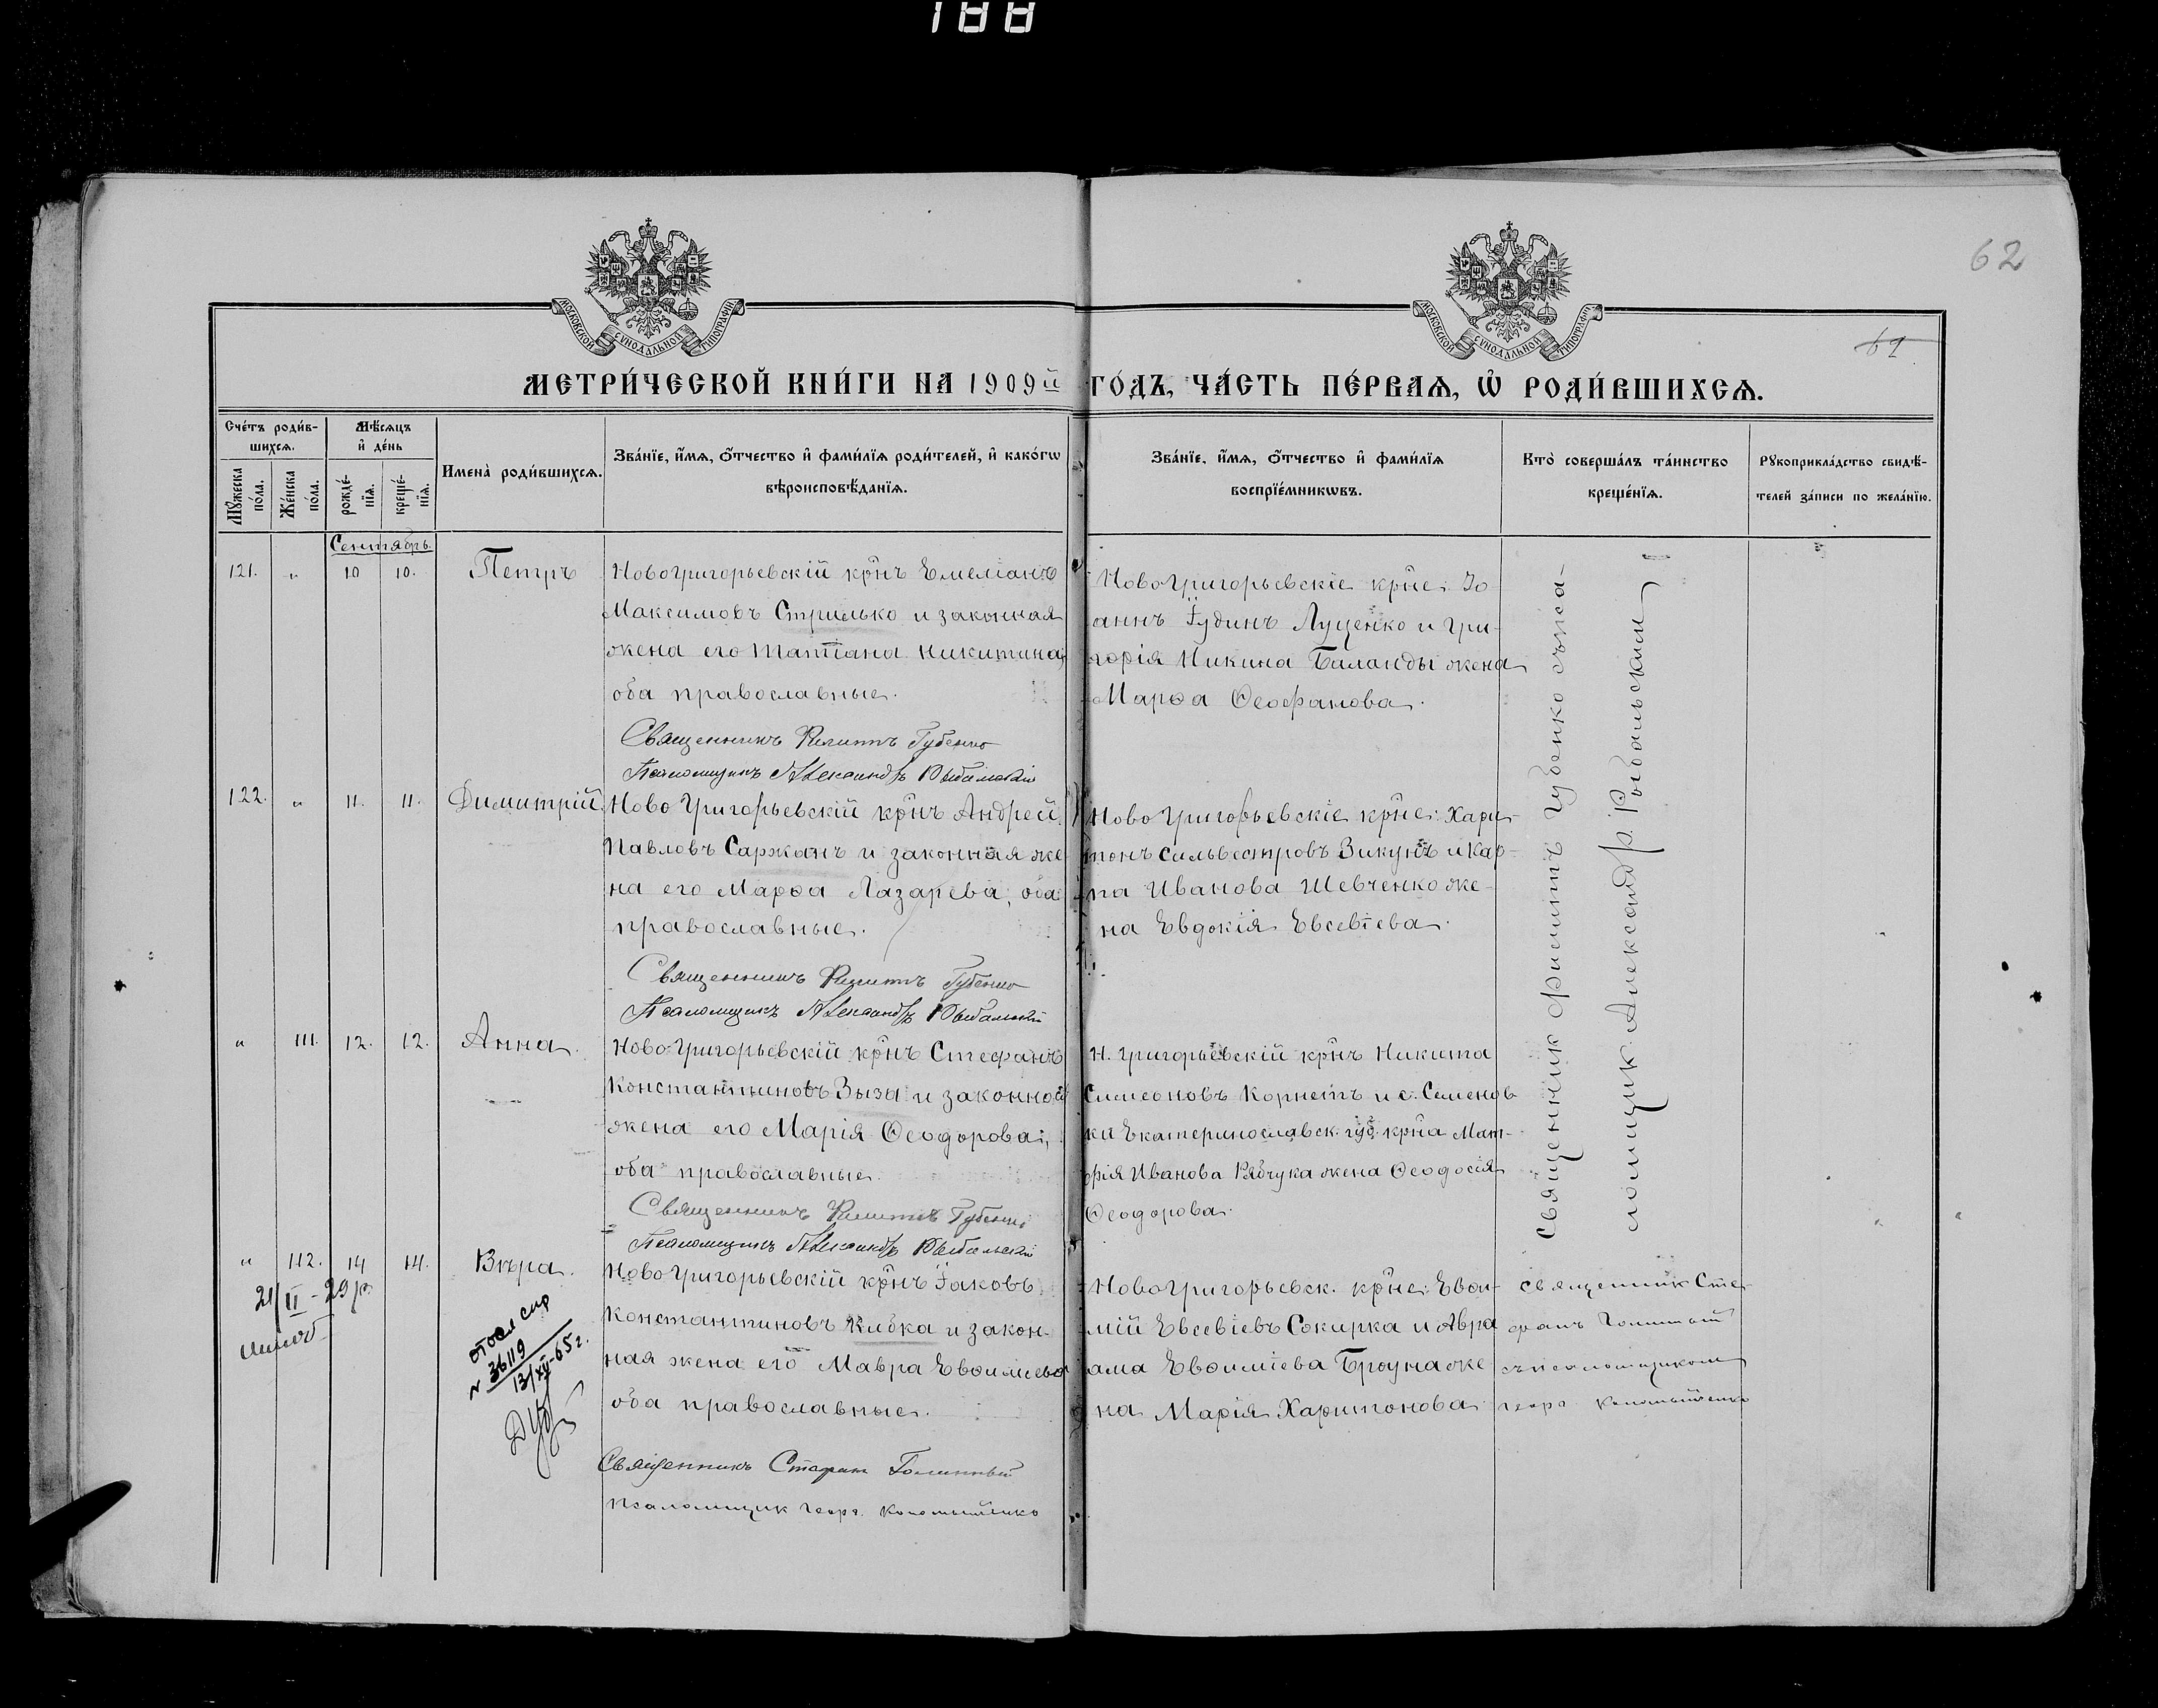 188
62
61
МОСКОВСКОЙ СѴНОДАЛЬНОЙ ТИПОГРАФІИ
МОСКОВСКОЙ СѴНОДАЛЬНОЙ ТИПОГРАФІИ
МЕТРИ́ЧЕСКОЙ КНИ́ГИ НА 1909й ГО́ДЪ, ЧА́СТЬ ПЕ́РВАѦ, Ѡ҆ РОДИ́ВШИХСѦ.
Сче́тъ роди́вшихсѧ.
Мꙋ́жеска по́ла.
Же́нска по́ла.
Мѣ́сѧцъ и҆ де́нь
рожде́нїѧ.
креще́нїѧ.
Имена̀ роди́вшихсѧ.
Зва́нїе, и҆́мѧ, ѻ҆́тчество и҆ фами́лїѧ роди́телей, и҆ како́гѡ
вѣроисповѣ́данїѧ.
Зва́нїе, и҆́мѧ, ѻ҆́тчество и҆ фами́лїѧ
воспрїе́мникѡвъ.
Кто̀ соверша́лъ та́инство
креще́нїѧ.
Рꙋкоприкла́дство свидѣ́-
телей за́писи по жела́нїю.
Сентябрь.
121. „ 10 10. Петръ
Новогригорьевскій крнъ Емеліанъ
Максимовъ Стрилько и законная
жена его Татіана Никитина,
оба православные.
Священникъ Филиппъ Губенко
Псаломщикъ Александръ Рыбальскій
Новогригорьевскіе крне: Іо
аннъ Іудинъ Луценко и Гри-
горія Никина Баланды жена
Марѳа Ѳеофанова.
122. „ 11. 11. Димитрій
Ново Григорьевскій крнъ Андрей
Павловъ Саржанъ и законная же
на его Марѳа Лазарева, оба
православные.
Священникъ Филиппъ Губенко
Псаломщикъ Александръ Рыбальскій
Ново Григорьевскіе крне: Хари-
тонъ Сильвестровъ Зикунъ и Кар-
па Иванова Шевченко же-
на Евдокія Евсевіева.
„ 111. 12. 12. Анна.
Ново Григорьевскій крнъ Стефанъ
Константиновъ Зыза и законная
жена его Марія Ѳеодорова,
оба православные.
Священникъ Филиппъ Губенко
Псаломщикъ Александръ Рыбальскій
Н. Григорьевскій крнъ Никита
Симеоновъ Корнетъ и с. Семенов
ки Екатеринославск. губ. крна Мат-
фія Иванова Рябчука жена Ѳеодосія
Ѳеодорова.
Священник Филиппъ Губенко съ пса-
ломщик. Александр. Рыбальским
„ 112. 14 14. Вѣра.
21/II - 29 р.
отосл спр
N 36119
13/XII-65 г.
Ново Григорьевскій крнъ Іаковъ
Константиновъ Клюбка и закон-
ная жена его Мавра Евѳиміева
оба православные.
Священникъ Стефан Голинный
Псаломщик Георг.
Новогригорьевск. крне: Евѳи-
мій Евсевіевъ Сокирка и Авра
ама Евѳиміева Броуна же
на Марія Харитонова
священник Сте-
фанъ
съ псаломщиком
Георг.